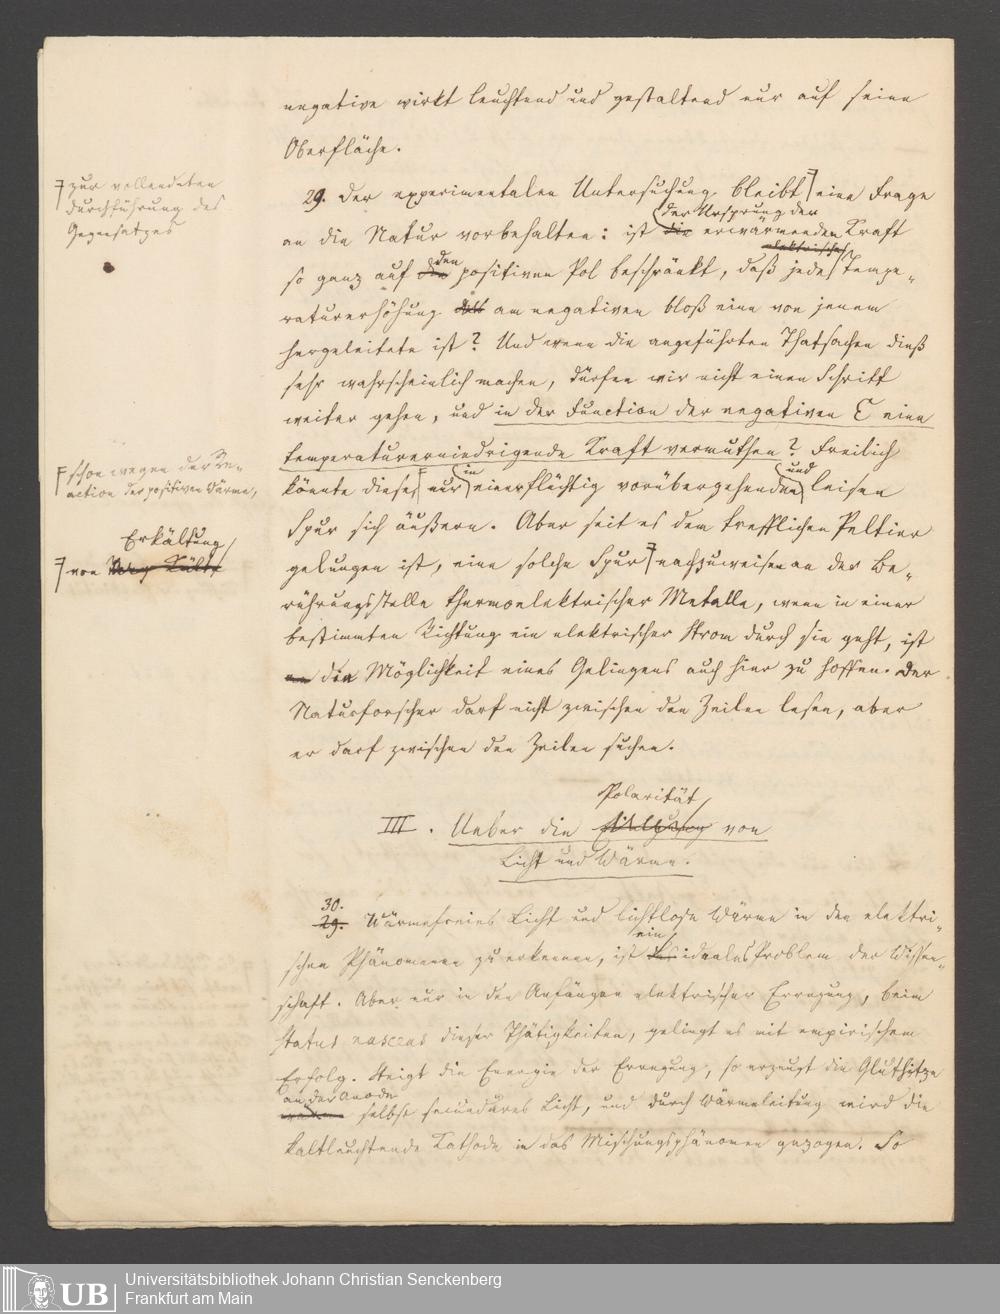 negative wirkt leuchtend und gestaltend nur auf seine
Oberfläche.
29. Der experimentalen Untersuchung bleibt eine Frage
zur vollendeten
Durchführung des
Gegensatzes
der Ursprung der
an die Natur vorbehalten: ist die erwärmenden Kraft
den elektrische
so ganz auf positiven Pol beschränkt, daß jede Tempe-
raturerhöhung am negativen bloß eine von jenem
hergeleitete ist? Und wenn die angeführten Thatsachen dieß
sehr wahrscheinlich machen, dürfen wir nicht einen Schritt
weiter gehen, und in der Function der negativen E eine
temperaturerniedrigende Kraft vermuthen? Freilich
schon wegen der Re-
action der positiven Wärme,
in und
könnte diese nur einer flüchtig vorübergehenden leisen
Spur sich äußern. Aber seit es dem trefflichen Peltier
Erkältung
von Kälte
gelungen ist, eine solche Spur nachzuweisen an der Be-
rührungsstelle thermoelektrischer Metalle, wenn in einer
bestimmten Richtung ein elektrischer Strom durch sie geht, ist
die Möglichkeit eines Gelingens auch hier zu hoffen. Der
Naturforscher darf nicht zwischen den Zeilen lesen, aber
er darf zwischen den Zeilen suchen.
Polarität
III. Ueber die von
Licht und Wärme.
30.
29. Wärmefreies Licht und lichtlose Wärme in den elektri-
ein
schen Phänomenen zu erkennen, ist das ideales Problem der Wissen-
schaft. Aber nur in den Anfängen elektrischer Erregung, beim
status nascens dieser Thätigkeiten, gelingt es mit empirischem
Erfolg. Steigt die Energie der Erregung, so erzeugt die Gluthhitze
an der Anode
selbst secundäres Licht, und durch Wärmeleitung wird die
kaltleuchtende Kathode in das Mischungsphänomen gezogen. So
Universitätsbibliothek Johann Christian Senckenberg
Frankfurt am Main
UB